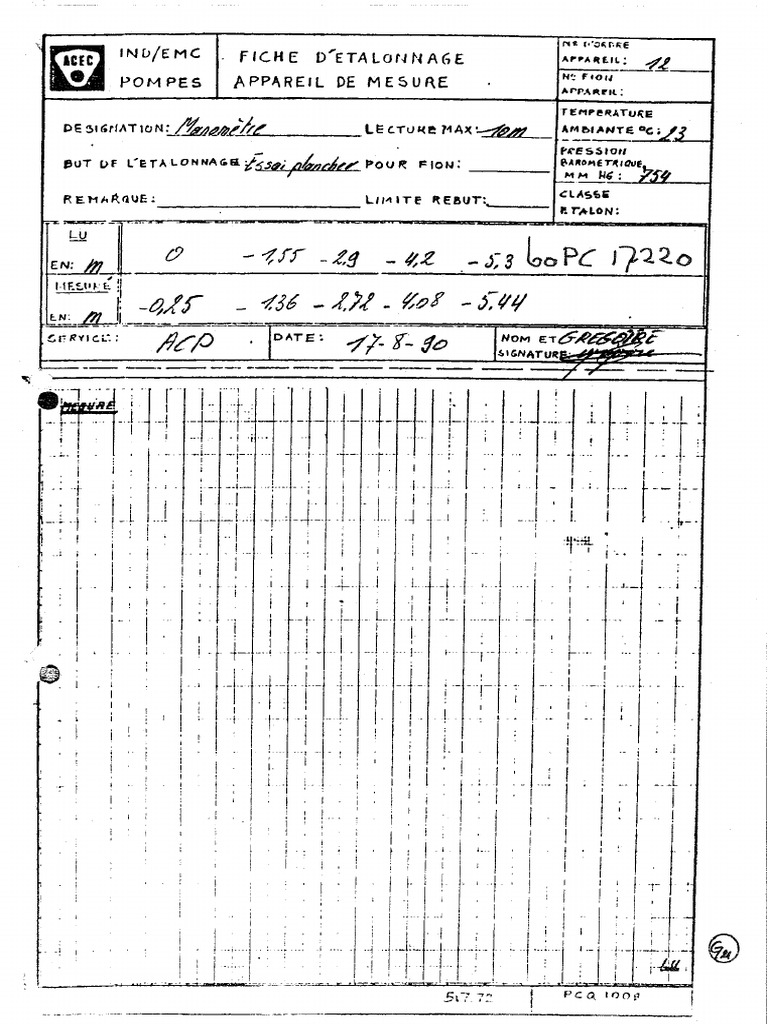 ACEC
IND/EMC
POMPES
FICHE D'ETALONNAGE
APPAREIL DE MESURE
NR D'ORDRE
APPAREIL: 12
No FION
APPAREIL:
DESIGNATION: Manomètre
LECTURE MAX: 10m
TEMPERATURE
AMBIANTE °C: 23
BUT DE L'ETALONNAGE: Essai plancher
POUR FION:
PRESSION
BAROMETRIQUE
MM HG: 754
REMARQUE:
LIMITE REBUT:
CLASSE
ETALON:
LU
EN: m 0 -1,55 -2,9 -4,2 -5,3 60PC 17220
MESURÉ
EN: m -0,25 -1,36 -2,72 -4,08 -5,44
SERVICE: ACP
DATE: 17-8-90
NOM ET GREGOIRE
SIGNATURE:
MESURE
LU
517.72
PCQ 100A